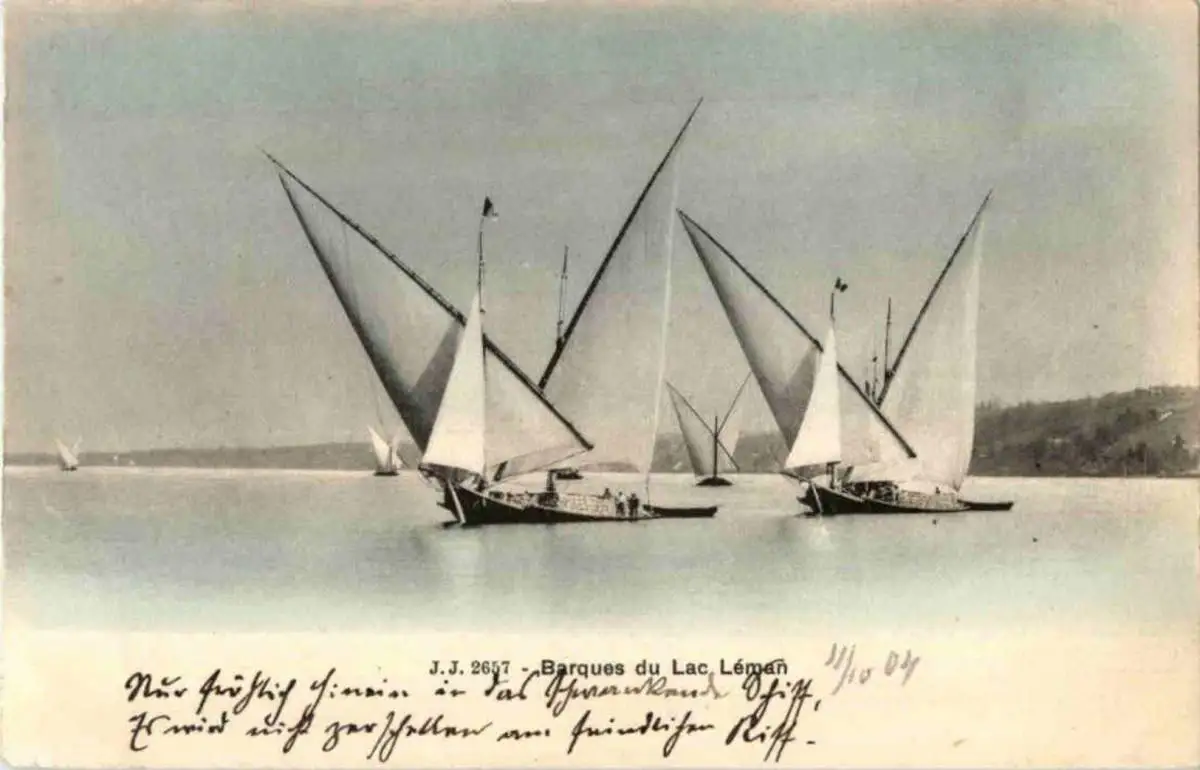 J.J. 2657 - Barques du Lac Léman
11/10 04
Nur fröhlich hinein in das schwankende Schiff,
Es wird nicht zerschellen am feindlichen Riff.